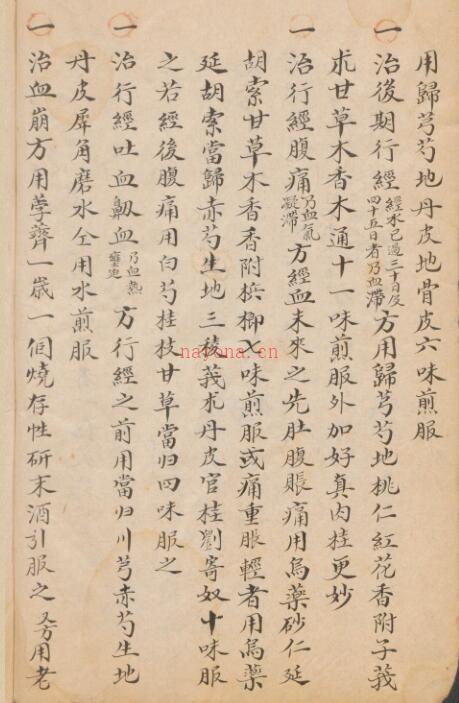 用歸芎芍地丹皮地骨皮六味煎服
一治後期行經經水已過三十日及四十五日者乃血滯方用歸芎芍地桃仁紅花香附子莪
朮甘草木香木通十一味煎服外加好真肉桂更妙
一治行經腹痛乃血氣凝滯方經血未來之先肚腹脹痛用烏藥砂仁延
胡索甘草木香香附檳榔七味煎服或痛重脹輕者用烏藥
延胡索當歸赤芍生地三稜莪朮丹皮官桂劉寄奴十味服
之若經後腹痛用白芍桂枝甘草當归四味服之
一治行經吐血衂血乃血熱方行經之前用當归川芎赤芍生地
丹皮犀角磨水仝用水煎服
一治血崩方用荸薺一歲一個燒存性研末酒引服之又方用老
nayona.cn